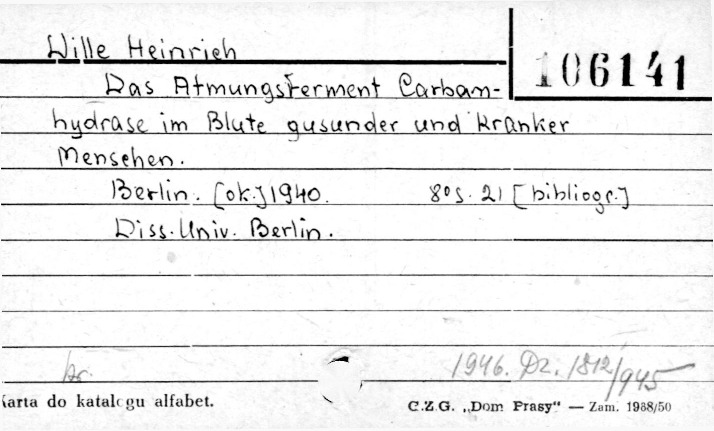 Wille Heinrich
106141
Das Atmungsferment Carban-
hydrase im Blute gusunder und Kranker
Menschen.
Berlin. [ok.] 1940. 8°s. 21 [bibliogr.]
Diss. Univ. Berlin.
1946. Dz. 1812/945
karta do katalogu alfabet.
C.Z.G. „Dom Prasy“ — Zam. 1988/50